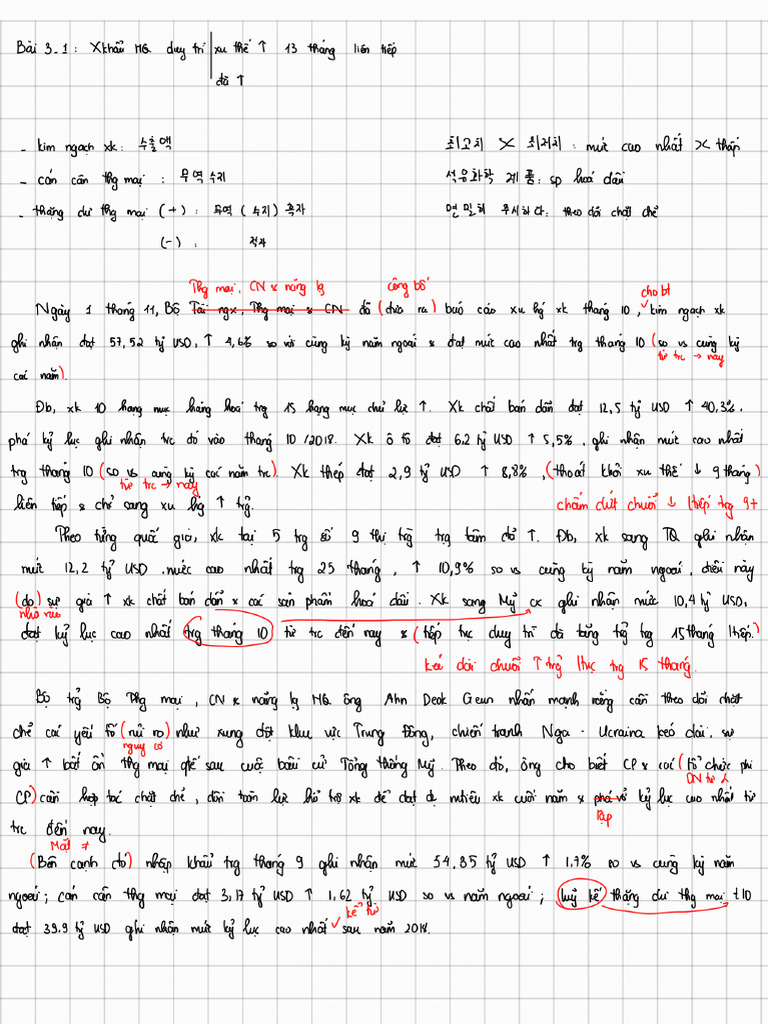 Bài 3_1 : Xkhẩu HQ duy trì xu thế ↑ 13 tháng liên tiếp
đà ↑
- kim ngạch xk : 수출액
최고치 X 최저치 : mức cao nhất X thấp
- cán cân thg mại : 무역수지
석유화학 제품 : sp hoá dầu
- thặng dư thg mại (+) : 무역 (수지) 흑자
면밀히 주시하다 : theo dõi chặt chẽ
(-) : 적자
Thg mại, CN & năng lg công bố cho bt
Ngày 1 tháng 11, Bộ Tài ngx, Thg mại & CN đã (đưa ra) báo cáo xu hg xk tháng 10, kim ngạch xk
ghi nhận đạt 57,52 tỷ USD, ↑ 4,6% so với cùng kỳ năm ngoái & đạt mức cao nhất trg tháng 10 (so vs cùng kỳ
từ trc → nay
các năm).
Đb, xk 10 hạng mục hàng hoá trg 15 hạng mục chủ lực ↑. Xk chất bán dẫn đạt 12,5 tỷ USD ↑ 40,3%.
phá kỷ lục ghi nhận trc đó vào tháng 10/2018. XK ô tô đạt 6,2 tỷ USD ↑ 5,5%, ghi nhận mức cao nhất
trg tháng 10 (so vs cùng kỳ các năm trc). Xk thép đạt 2,9 tỷ USD ↑ 8,8%, (thoát khỏi xu thế ↓ 9 tháng)
từ trc → nay
liên tiếp & chở sang xu hg ↑ trg. chấm dứt chuỗi ↓ ltiếp trg 9t
Theo từng quốc gia, xk tại 5 trg số 9 thị trg trg tâm đổ ↑. Đb, xk sang TQ ghi nhận
mức 12,2 tỷ USD, mức cao nhất trg 25 tháng, ↑ 10,9% so vs cùng kỳ năm ngoái, điều này
(do) sự gia ↑ xk chất bán dẫn & các sản phẩm hoá dầu. Xk sang Mỹ cx ghi nhận mức 10,4 tỷ USD,
nhờ vào
đạt kỷ lục cao nhất trg tháng 10 từ trc đến nay & (tiếp tục duy trì đà tăng trg trg 15 tháng ltiếp.)
kéo dài chuỗi ↑ trg ltục trg 15 tháng.
Bộ trg Bộ Thg mại, CN & năng lg HQ ông Ahn Deok Geun nhấn mạnh rằng cần theo dõi chặt
chẽ các yếu tố (rủi ro) như xung đột khu vực Trung Đông, chiến tranh Nga - Ucraina kéo dài, sự
nguy cơ
gia ↑ bất ổn thg mại qtế sau cuộc bầu cử Tổng thống Mỹ. Theo đó, ông cho biết CP & các (tổ chức phi
DN tư
CP) cần hợp tác chặt chẽ, dồn toàn lực hỗ trợ xk để đạt đc mtiêu xk cuối năm & phá vỡ kỷ lục cao nhất từ
lập
trc đến nay.
Mặt ≠
(Bên cạnh đó) nhập khẩu trg tháng 9 ghi nhập mức 54,35 tỷ USD ↑ 1,7% so vs cùng kỳ năm
ngoái ; cán cân thg mại đạt 3,17 tỷ USD ↑ 1,62 tỷ USD so vs năm ngoái ; luỹ kế thặng dư thg mại t10
kể từ
đạt 39,9 tỷ USD ghi nhận mức kỷ lục cao nhất sau năm 2018.